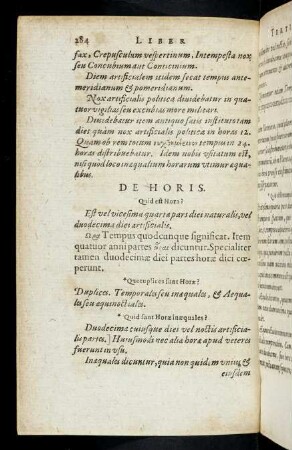 284 LIBER
fax, Crepusculum vespertinum, Intempesta nox
seu Concubium aut Conticinium.
Diem artificialem itidem secat tempus ante-
meridianum & pomeridianum.
Nox artificialis politica diuidebatur in qua-
tuor vigilias seu excubias more militari.
Diuidebatur item antiquo satis instituto tam
dies quàm nox artificialis politica in horas 12.
Quam ob rem totum tempus in 24
horas distribuebatur. Idem nobis vsitatum est,
nisi quod loco inæqualium horarum vtimur æqua-
libus.
DE HORIS.
Quid est Hora?
Est vel vicesima quarta pars diei naturalis, vel
duodecima diei artificialis.
Tempus quodcunque significat. Item
quatuor anni partes dicuntur. Specialiter
tamen duodecimæ diei partes horæ dici cœ-
perunt.
*Quotuplices sunt Horæ?
Duplices. Temporales seu inæquales, & Æqua-
les seu æquinoctiales.
*Quid sunt Horæ inæquales?
Duodecimæ cuiusque diei vel noctis artificia-
lis partes.] Huiusmodi nec aliæ horæ apud veteres
fuerunt in vsu.
Inæquales dicuntur, quia non quidem vnius &
eiusdem